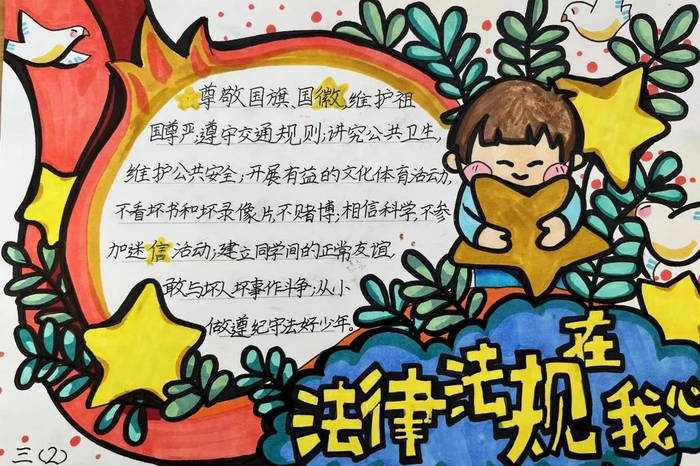 尊敬国旗、国徽,维护祖
国尊严;遵守交通规则;讲究公共卫生,
维护公共安全;开展有益的文化体育活动,
不看坏书和坏录像片,不赌博;相信科学,不参
加迷信活动;建立同学间的正常友谊,
敢与坏人坏事作斗争;从小
做遵纪守法好少年。
法律法规在我心
三(2)